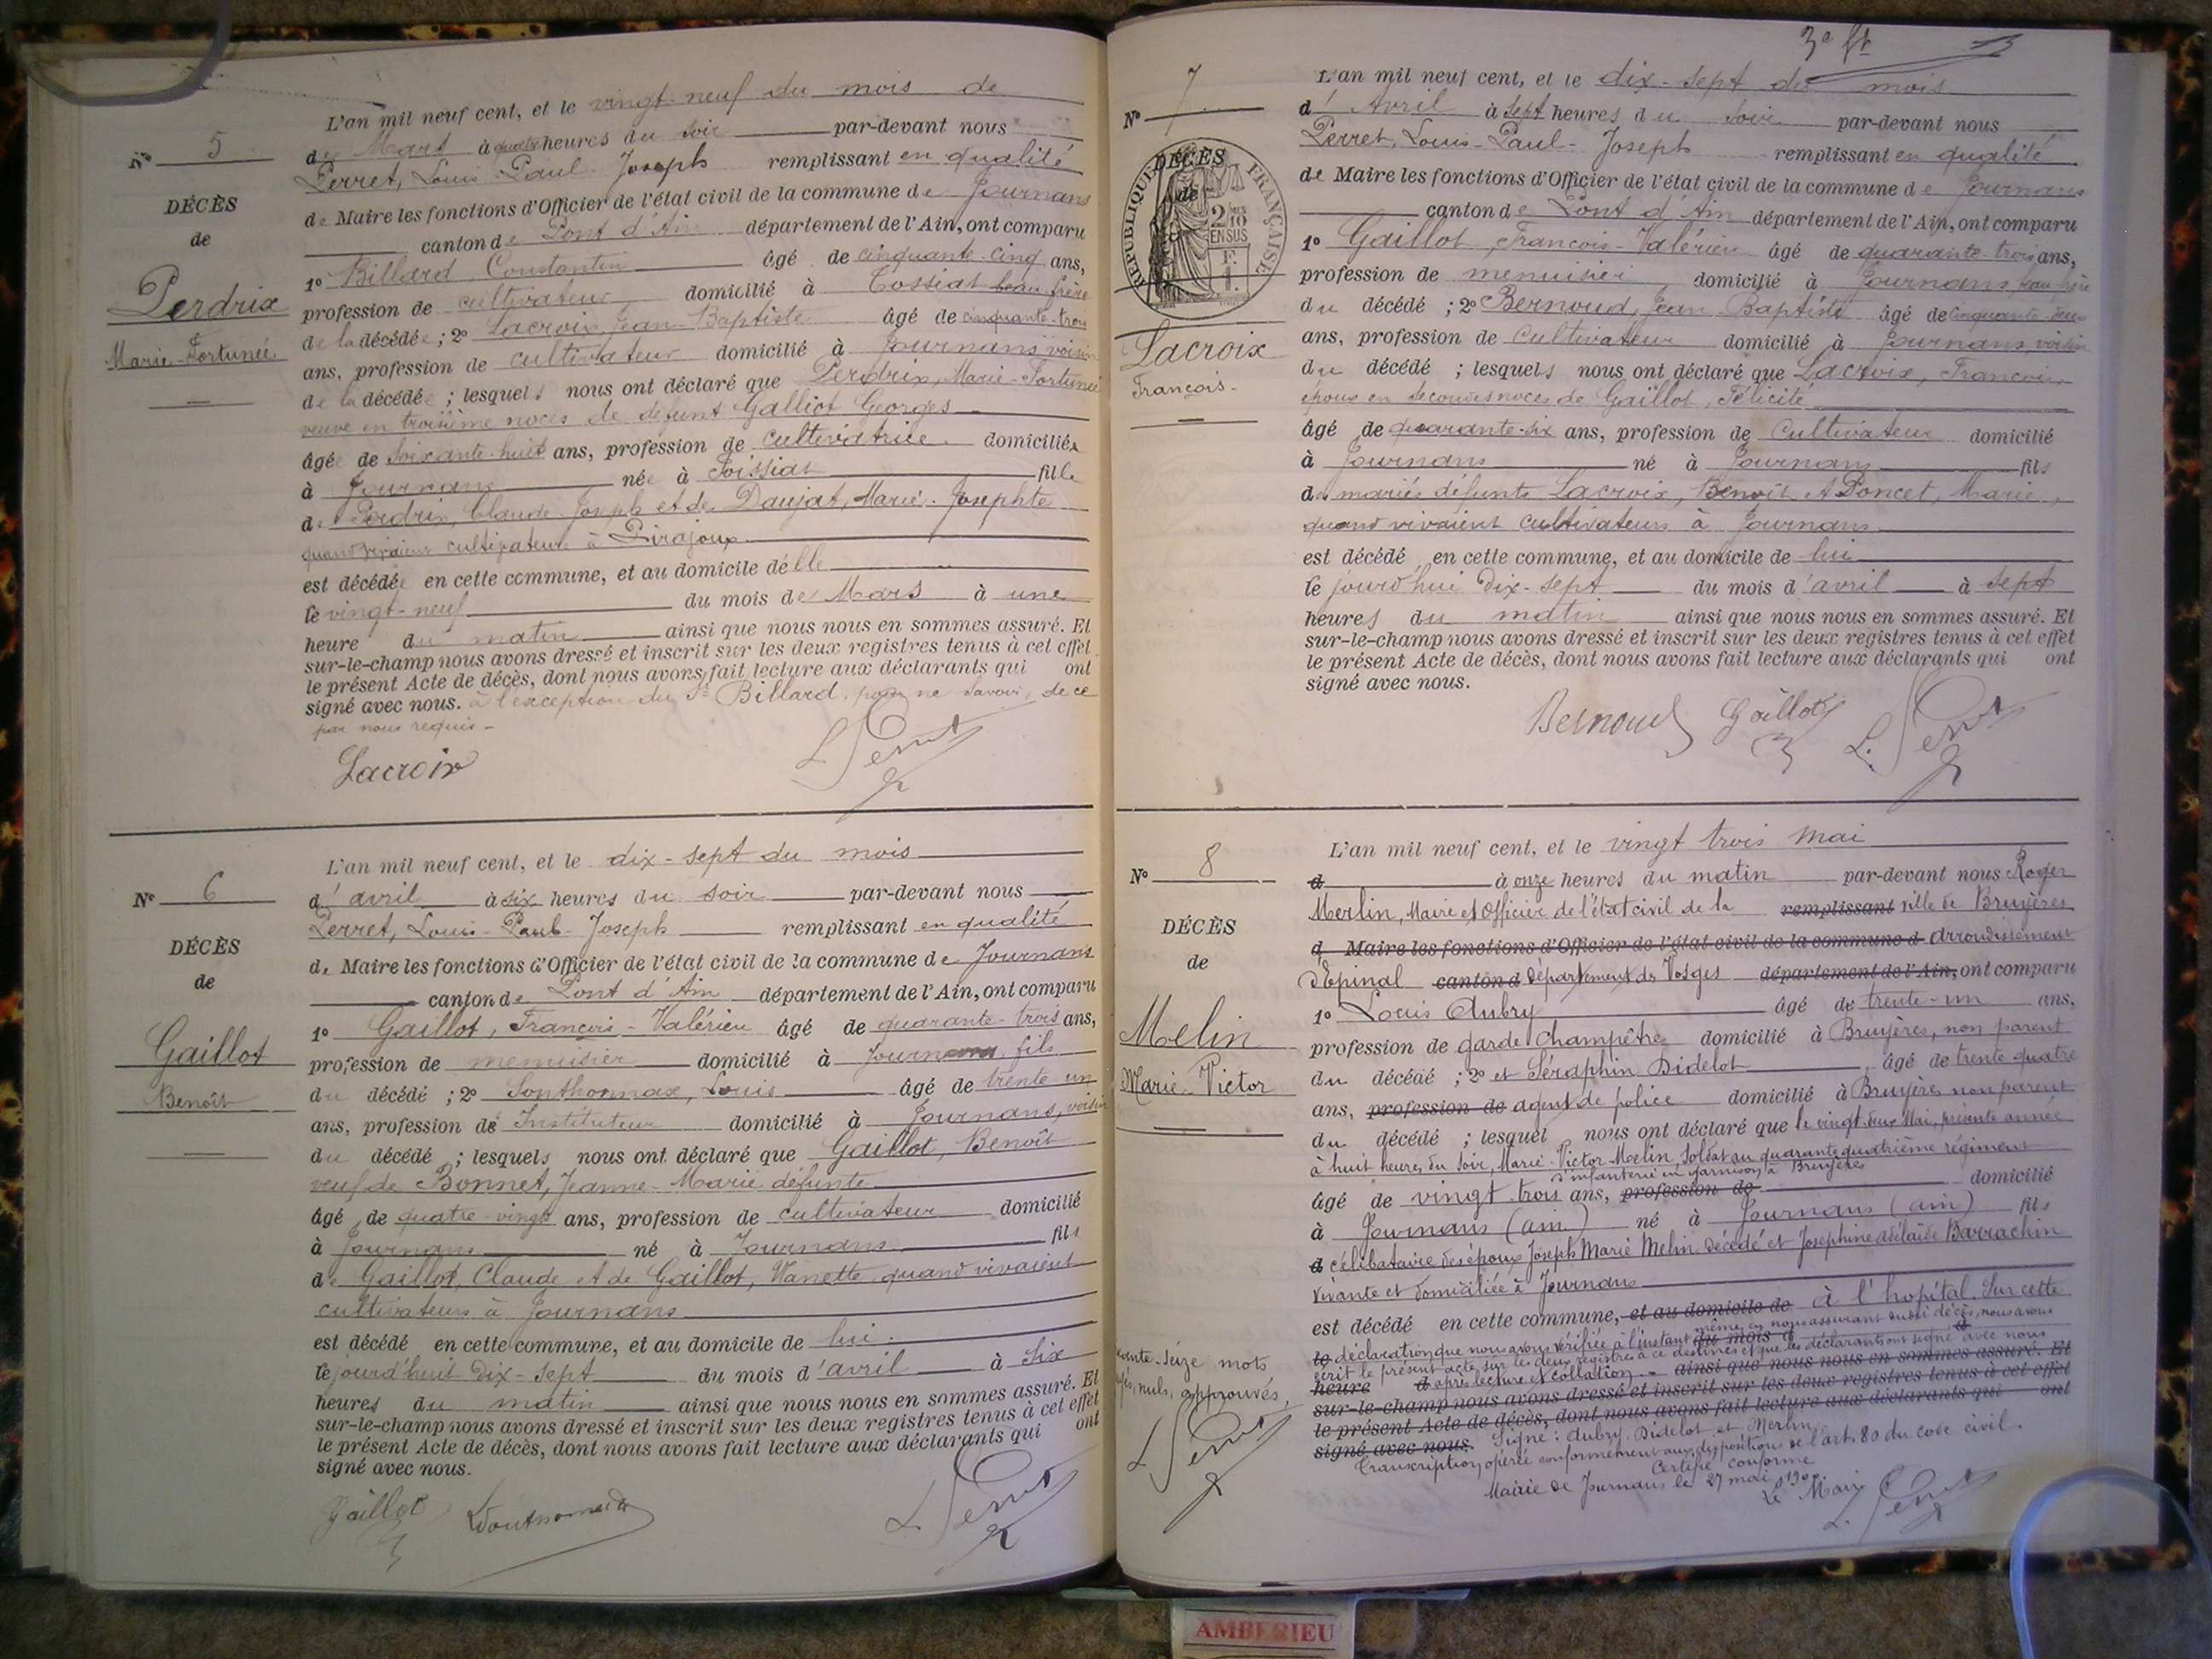 L'an mil neuf cent, et le vingt-neuf du mois de
N° 5
de Mars à quatre heures du soir par-devant nous
Perret, Louis-Paul-Joseph remplissant en qualité
DÉCÈS
de Maire les fonctions d'Officier de l'état civil de la commune de Journans
de
canton de Pont d'Ain département de l'Ain, ont comparu
1° Billard Constantin âgé de cinquante-cinq ans,
Perdrix
profession de cultivateur domicilié à Tossiat beau frère
Marie-Fortunée
de la décédée ; 2° Lacroix Jean-Baptiste âgé de cinquante-trois
ans, profession de cultivateur domicilié à Journans voisin
de la décédée ; lesquels nous ont déclaré que Perdrix, Marie-Fortunée
veuve en troisième noces de defunt Galliot Georges
âgée de soixante-huit ans, profession de cultivatrice domiciliée
à Journans née à fille
de Perdrix, Claude-Joseph et de Daujat, Marie-Josephte
quand vivaient cultivateurs à Pirajoux
est décédée en cette commune, et au domicile d'elle
le vingt-neuf du mois de Mars à une
heure du matin ainsi que nous nous en sommes assuré. Et
sur-le-champ nous avons dressé et inscrit sur les deux registres tenus à cet effet
le présent Acte de décès, dont nous avons fait lecture aux déclarants qui ont
signé avec nous. à l'exception du Sr Billard, pour ne savoir, de ce
par nous requis -
Lacroix L. Perret
L'an mil neuf cent, et le dix-sept du mois
N° 6
d'avril à six heures du soir par-devant nous
Perret, Louis-Paul-Joseph remplissant en qualité
DÉCÈS
de Maire les fonctions d'Officier de l'état civil de la commune de Journans
de
canton de Pont d'Ain département de l'Ain, ont comparu
1° Gaillot, François-Valérien âgé de quarante-trois ans,
Gaillot
profession de menuisier domicilié à Journans, fils
Benoît
du décédé ; 2° Sonthonnax, Louis âgé de trente un
ans, profession de Instituteur domicilié à Journans, voisin
du décédé ; lesquels nous ont déclaré que Gaillot, Benoît
veuf de Bonnet, Jeanne-Marie défunte
âgé de quatre-vingts ans, profession de cultivateur domicilié
à Journans né à Journans fils
de Gaillot, Claude et de Gaillot, Nanette quand vivaient
cultivateurs à Journans
est décédé en cette commune, et au domicile de lui
le jourd'huit dix-sept du mois d'avril à six
heures du matin ainsi que nous nous en sommes assuré. Et
sur-le-champ nous avons dressé et inscrit sur les deux registres tenus à cet effet
le présent Acte de décès, dont nous avons fait lecture aux déclarants qui ont
signé avec nous.
Gaillot L. Perret
3e ft 13
L'an mil neuf cent, et le dix-sept du mois
N° 7
d'Avril à sept heures du soir par-devant nous
Perret, Louis-Paul-Joseph remplissant en qualité
DÉCÈS
de
RÉPUBLIQUE FRANÇAISE
2/10 EN SUS
de Maire les fonctions d'Officier de l'état civil de la commune de Journans
canton de Pont d'Ain département de l'Ain, ont comparu
1° Gaillot, François-Valérien âgé de quarante-trois ans,
profession de menuisier domicilié à Journans, beau frère
du décédé ; 2° Bernoud, Jean-Baptiste âgé de cinquante-deux
Lacroix
François-
ans, profession de Cultivateur domicilié à Journans, voisin
du décédé ; lesquels nous ont déclaré que Lacroix, François
époux en secondes noces de Gaillot, Félicité
âgé de quarante-six ans, profession de Cultivateur domicilié
à Journans né à Journans fils
des mariés défunts Lacroix, Benoît et Poncet, Marie,
quand vivaient cultivateurs à Journans
est décédé en cette commune, et au domicile de lui
le jourd'hui dix-sept du mois d'avril à sept
heures du matin ainsi que nous nous en sommes assuré. Et
sur-le-champ nous avons dressé et inscrit sur les deux registres tenus à cet effet
le présent Acte de décès, dont nous avons fait lecture aux déclarants qui ont
signé avec nous.
Bernoud Gaillot L. Perret
L'an mil neuf cent, et le vingt trois mai
N° 8
d à onze heures du matin par-devant nous Roger
Merlin, Maire et Officier de l'état civil de la remplissant ville de Bruyères
DÉCÈS
d Maire les fonctions d'Officier de l'état civil de la commune d Arrondissement
de
d'Epinal canton d département des Vosges département de l'Ain, ont comparu
1° Louis Aubry âgé de trente-un ans,
Melin
profession de garde champêtre domicilié à Bruyères, non parent
Marie-Victor
du décédé ; 2° et Séraphin Didelot âgé de trente quatre
ans, profession de agent de police domicilié à Bruyères non parent
du décédé ; lesquel nous ont déclaré que le vingt deux Mai, présente année
à huit heures du soir, Marie-Victor Melin soldat au quarante quatrième régiment
d'infanterie en garnison à Bruyères
âgé de vingt-trois ans, profession de domicilié
à Journans (ain) né à Journans (ain) fils
d célibataire des époux Joseph Marie Melin décédé et Josephine Adélaïde Barrachin
vivante et domiciliée à Journans
est décédé en cette commune, et au domicile de à l'hopital. Sur cette
même, en nous assurant dudit décès, nous avons
le déclaration que nous avons vérifiée à l'instant du mois d à
écrit le présent acte sur les deux registres à ce destinés et que les déclarants ont signé avec nous
heure d après lecture et collation. ainsi que nous nous en sommes assuré. Et
sur-le-champ nous avons dressé et inscrit sur les deux registres tenus à cet effet
le présent Acte de décès, dont nous avons fait lecture aux déclarants qui ont
signé avec nous. Signé : Aubry. Didelot et Merlin
Transcription opérée conformément aux dispositions de l'art. 80 du code civil.
Certifié conforme
Mairie de Journans le 27 mai 1900.
Le Maire
L. Perret
ante-seize mots
nuls, approuvés,
L. Perret
AMBERIEU